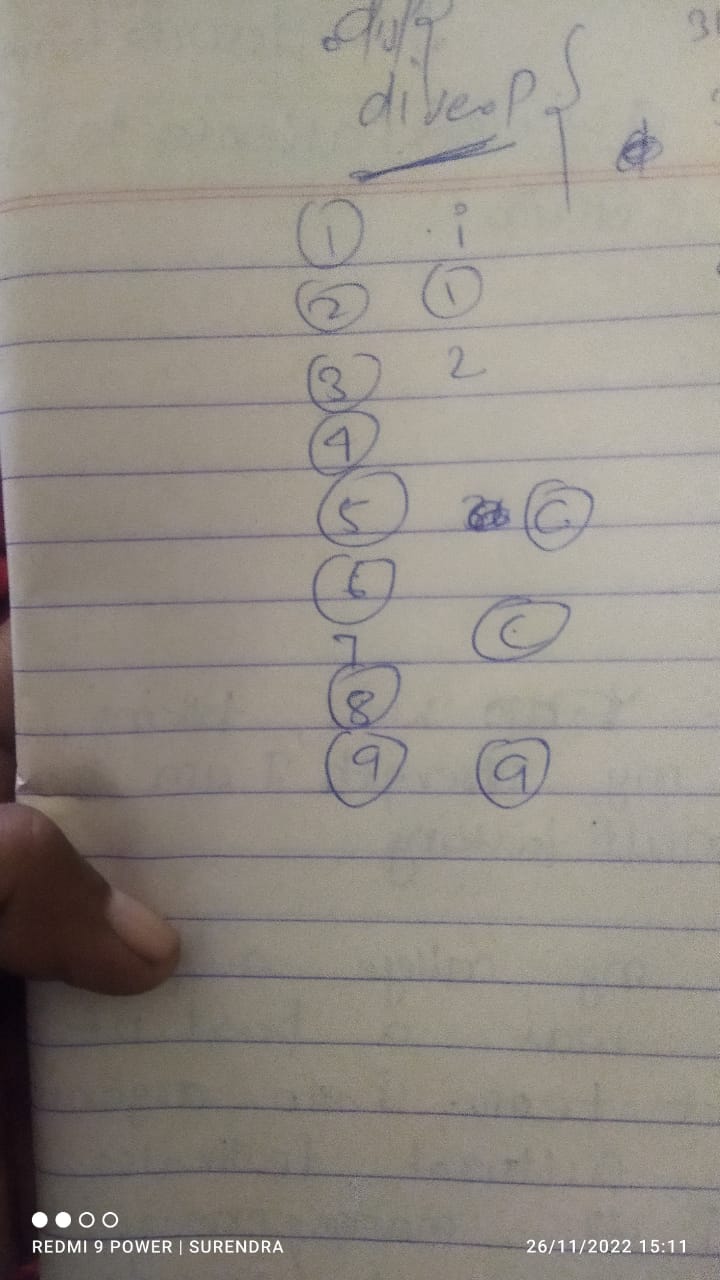 1 i
2 1
3 2
4
5 C
6
7 C
8
9 9
REDMI 9 POWER | SURENDRA 26/11/2022 15:11